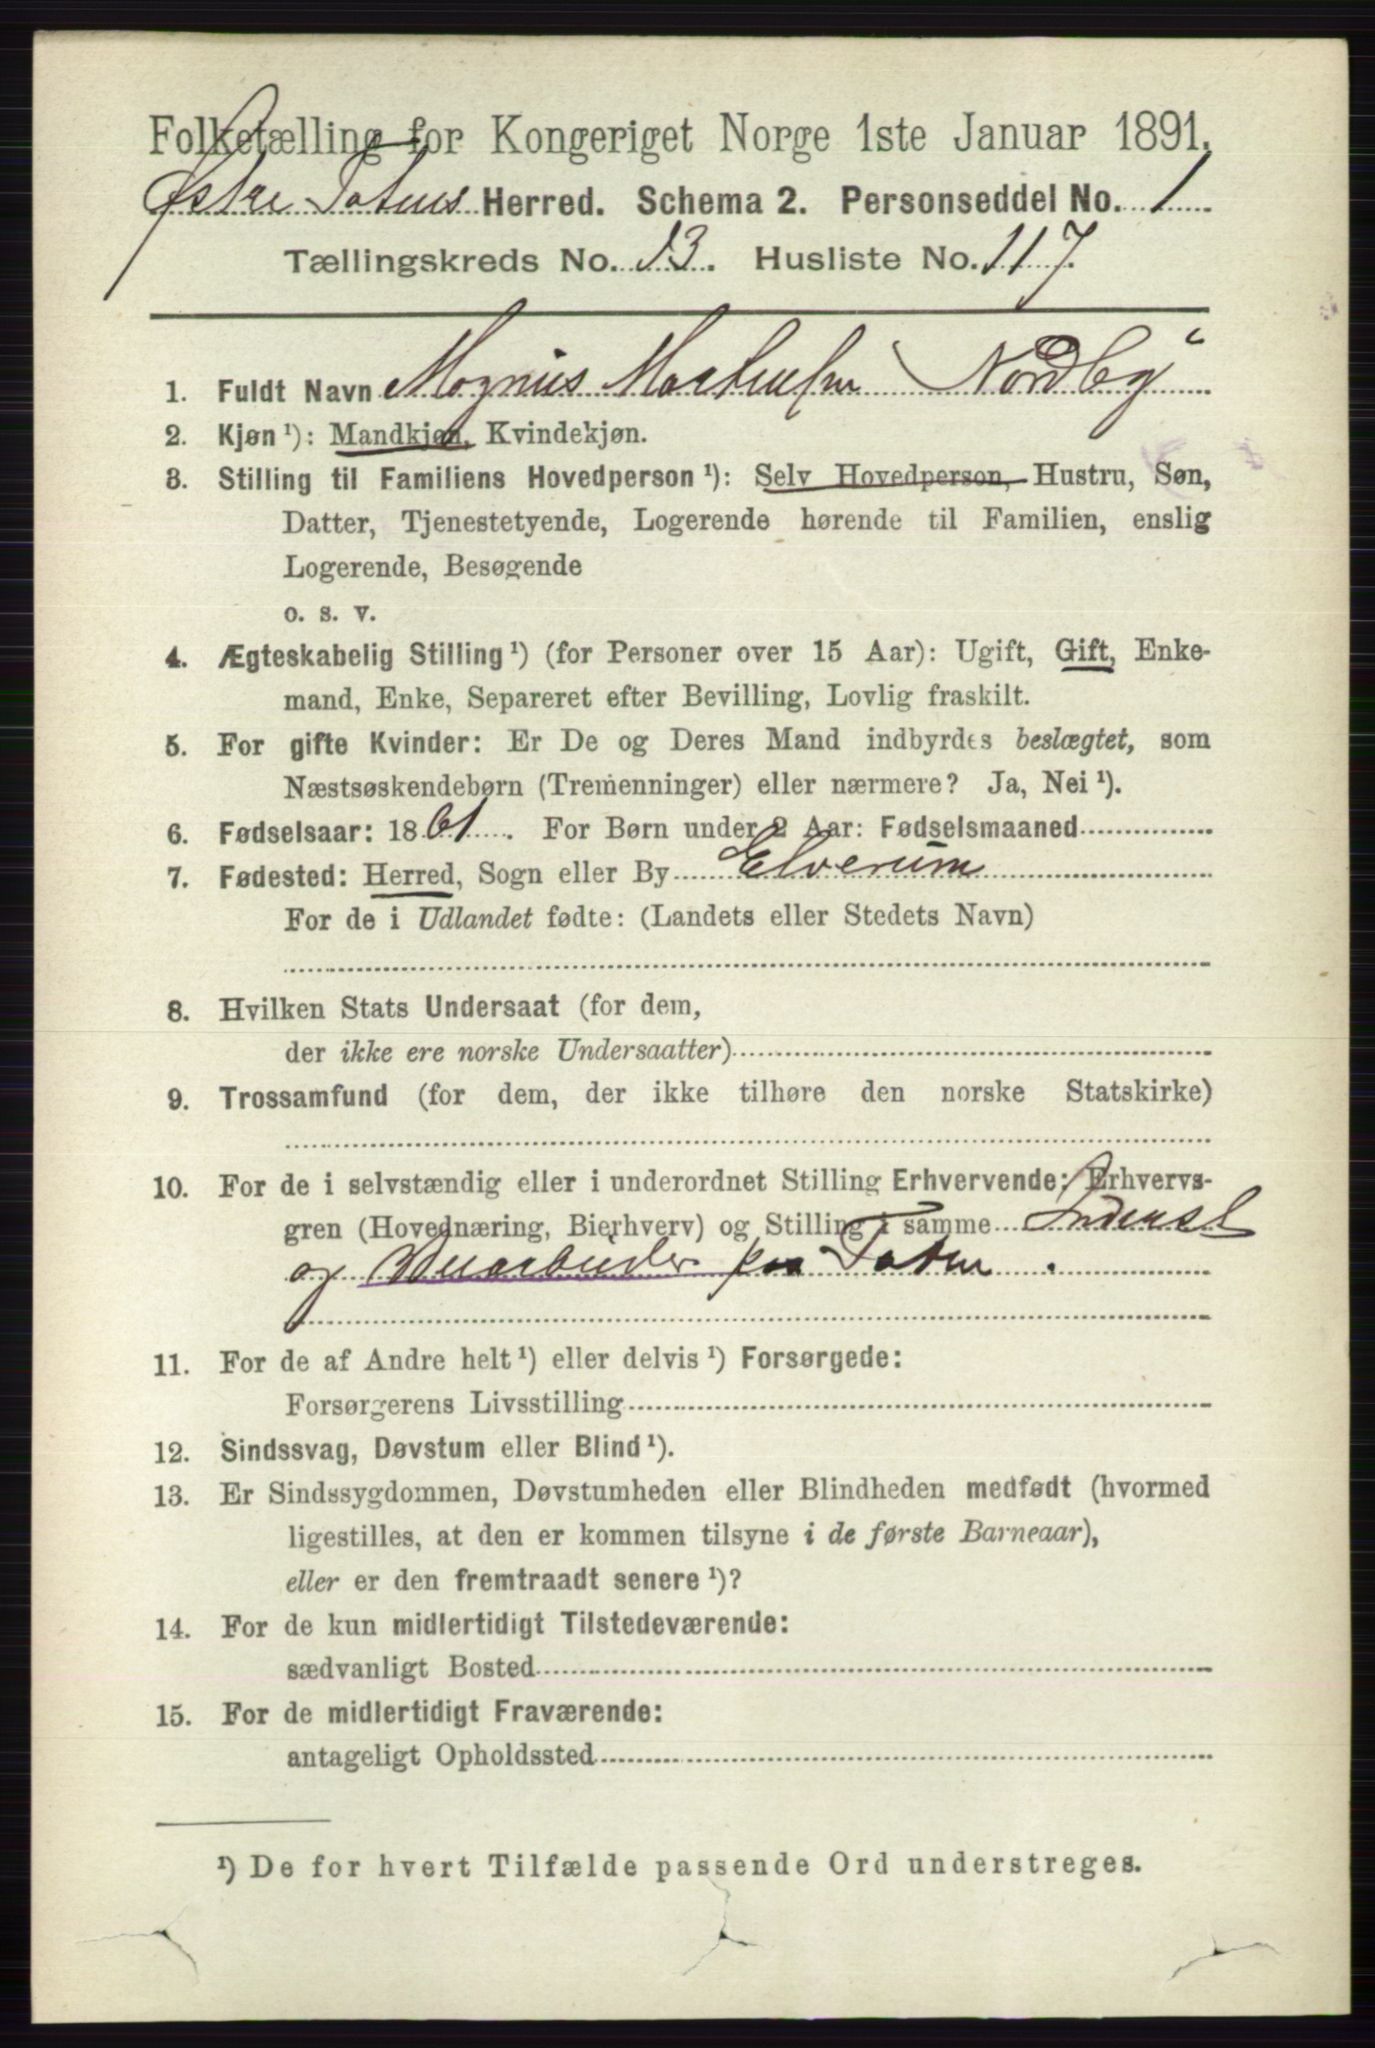 Folketælling for Kongeriget Norge 1ste Januar 1891.
Østre Totens Herred. Schema 2. Personseddel No. 1
Tællingskreds No. 13. Husliste No. 117.
1. Fuldt Navn Magnus Martinsen Nordby
2. Kjøn ¹): Mandkjøn, Kvindekjøn.
3. Stilling til Familiens Hovedperson ¹): Selv Hovedperson, Hustru, Søn,
Datter, Tjenestetyende, Logerende hørende til Familien, enslig
Logerende, Besøgende
o. s. v.
4. Ægteskabelig Stilling ¹) (for Personer over 15 Aar): Ugift, Gift, Enke-
mand, Enke, Separeret efter Bevilling, Lovlig fraskilt.
5. For gifte Kvinder: Er De og Deres Mand indbyrdes beslægtet, som
Næstsøskendebørn (Tremenninger) eller nærmere? Ja, Nei ¹).
6. Fødselsaar: 1861. For Børn under 2 Aar: Fødselsmaaned
7. Fødested: Herred, Sogn eller By Elverum
For de i Udlandet fødte: (Landets eller Stedets Navn)
8. Hvilken Stats Undersaat (for dem,
der ikke ere norske Undersaatter)
9. Trossamfund (for dem, der ikke tilhøre den norske Statskirke)
10. For de i selvstændig eller i underordnet Stilling Erhvervende: Erhvervs-
gren (Hovednæring, Bierhverv) og Stilling i samme Inderst
og paa Toten.
11. For de af Andre helt ¹) eller delvis ¹) Forsørgede:
Forsørgerens Livsstilling
12. Sindssvag, Døvstum eller Blind ¹).
13. Er Sindssygdommen, Døvstumheden eller Blindheden medfødt (hvormed
ligestilles, at den er kommen tilsyne i de første Barneaar),
eller er den fremtraadt senere ¹)?
14. For de kun midlertidigt Tilstedeværende:
sædvanligt Bosted
15. For de midlertidigt Fraværende:
antageligt Opholdssted
¹) De for hvert Tilfælde passende Ord understreges.